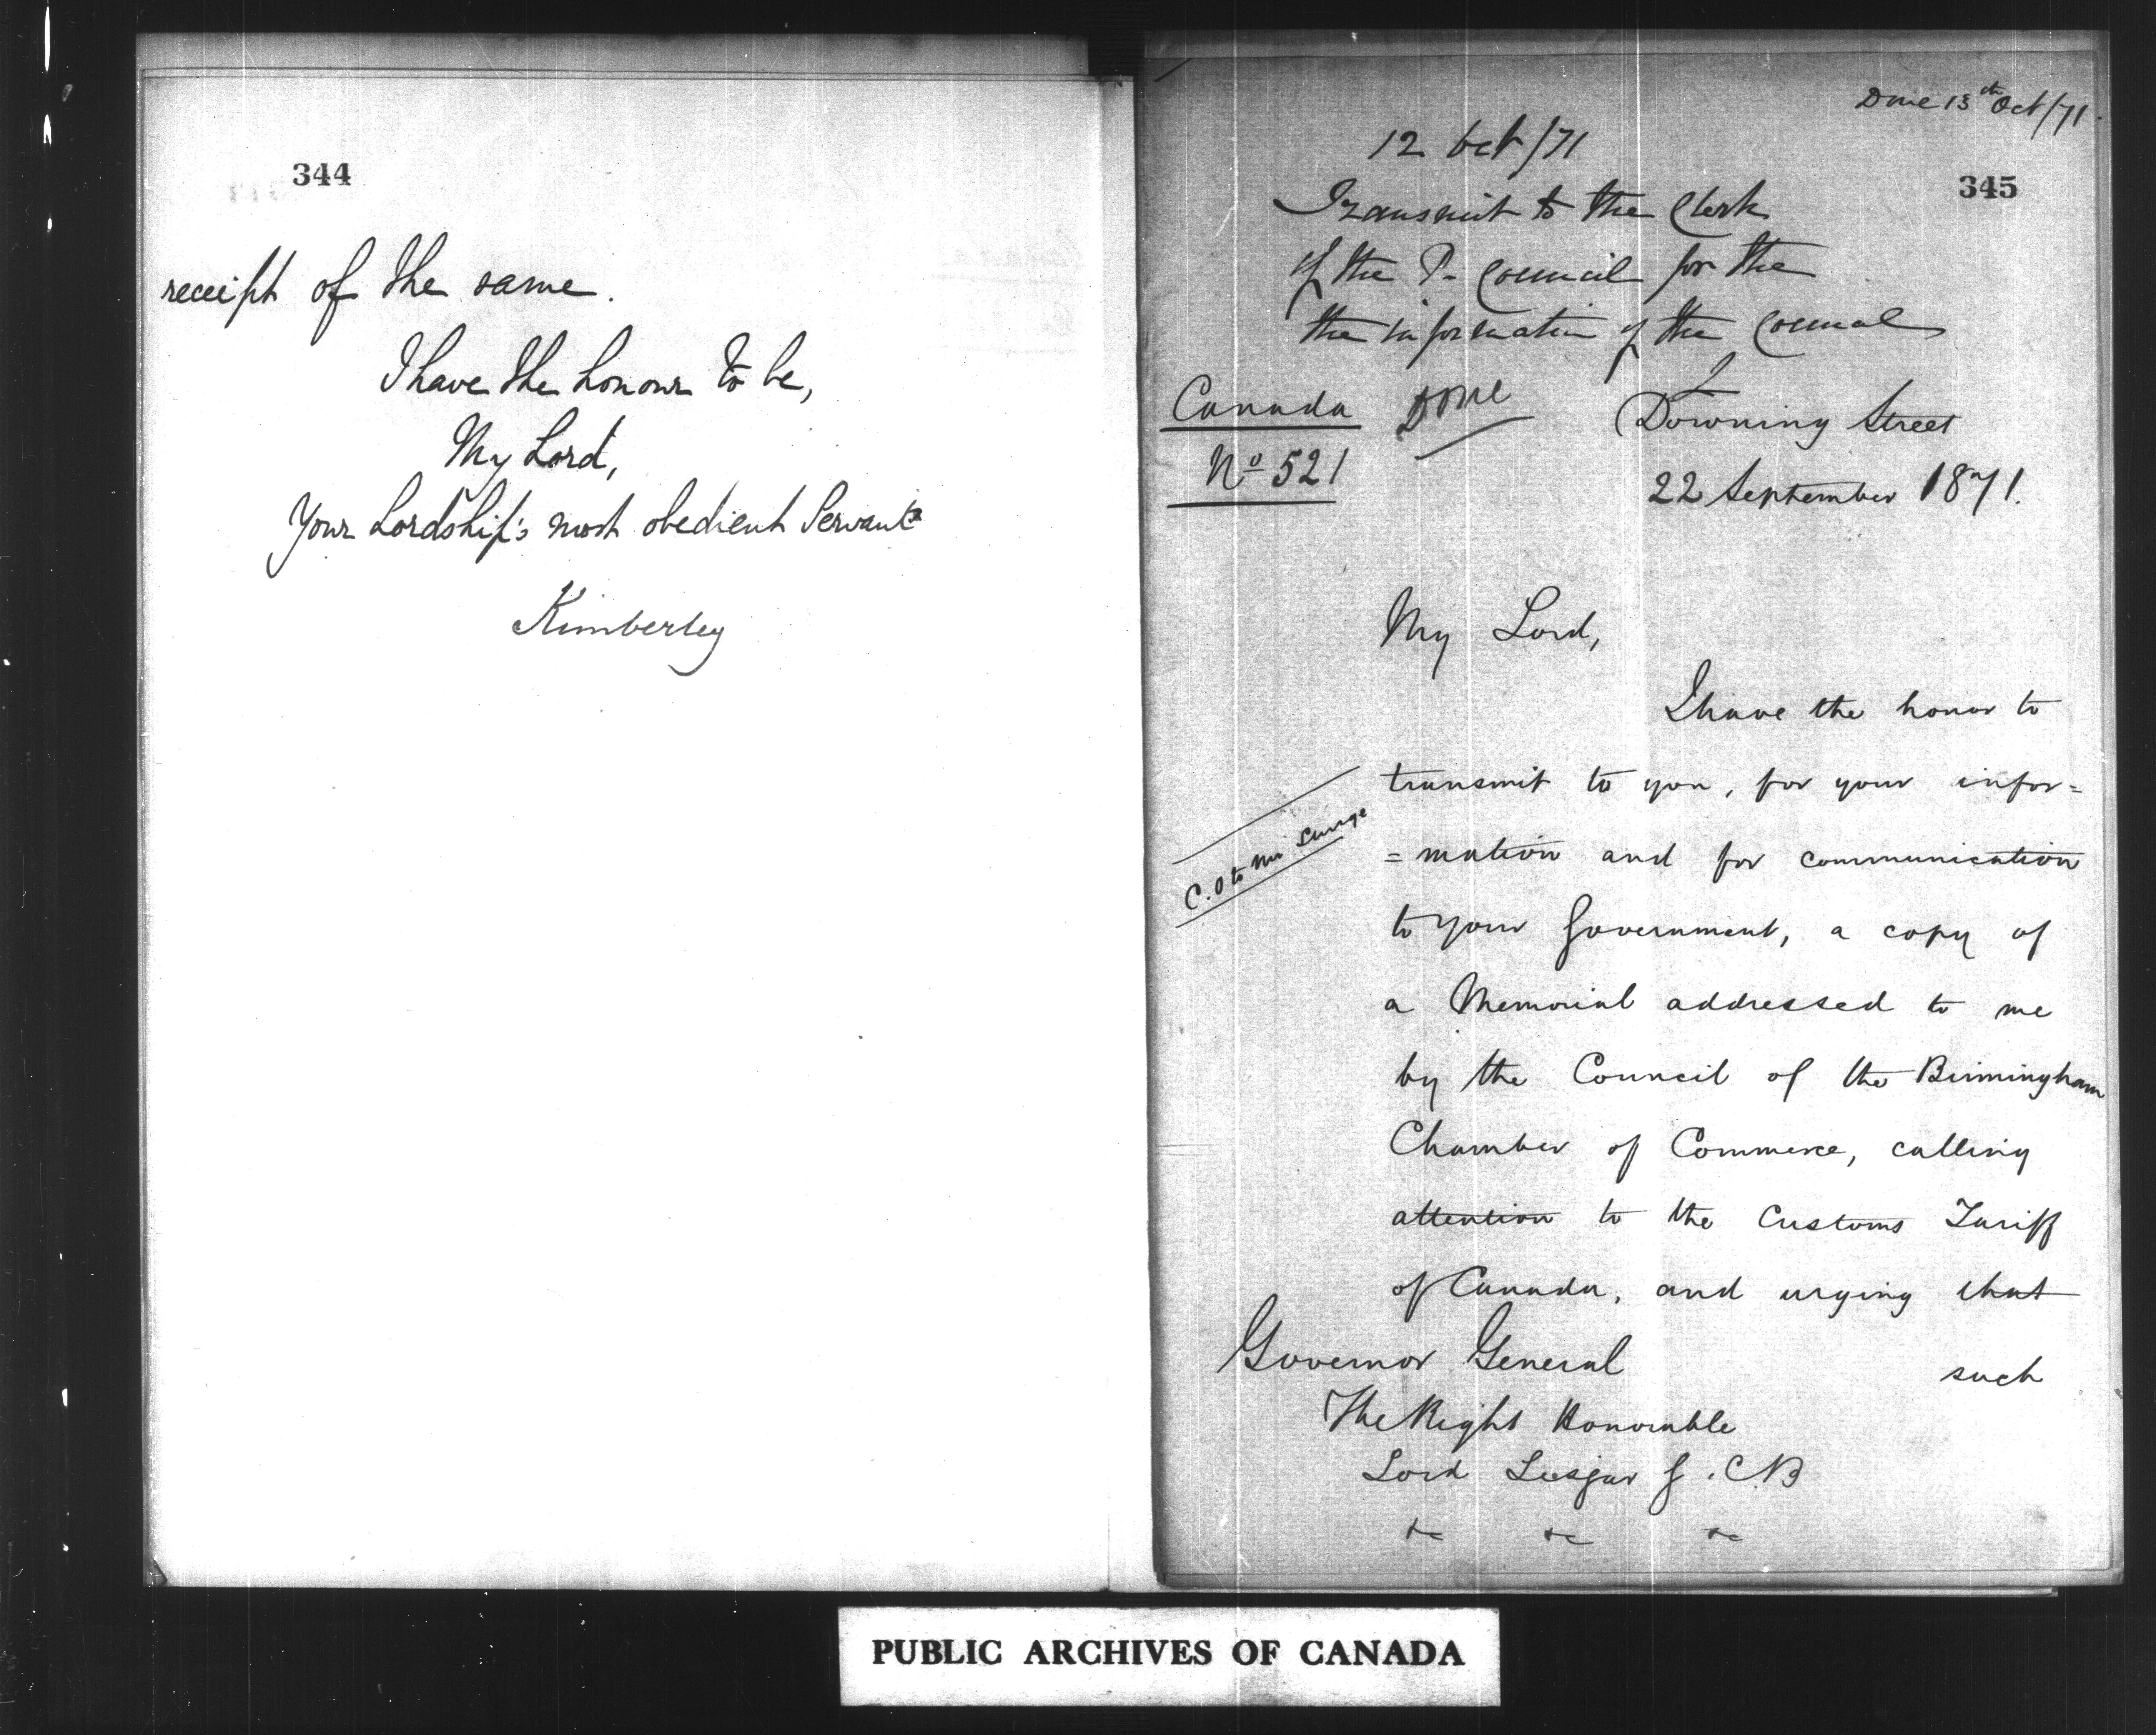 344
receipt of the same.
I have the honour to be,
My Lord,
Your Lordship's most obedient Servant
Kimberley
Done 13th Oct/71.
12 Oct/71
345
Transmit to the Clerk
of the P. Council for the
the information of the Council
L
Canada
Done
Downing Street
No 521
22 September 1871.
My Lord,
I have the honor to
transmit to you, for your infor=
=mation and for communication
C.O to Mr
to your Government, a copy of
a Memorial addressed to me
by the Council of the Birmingham
Chamber of Commerce, calling
attention to the Customs Tariff
of Canada, and urging that
such
Governor General
The Right Honorable
Lord Lisgar G.C.B
&c &c &c
PUBLIC ARCHIVES OF CANADA